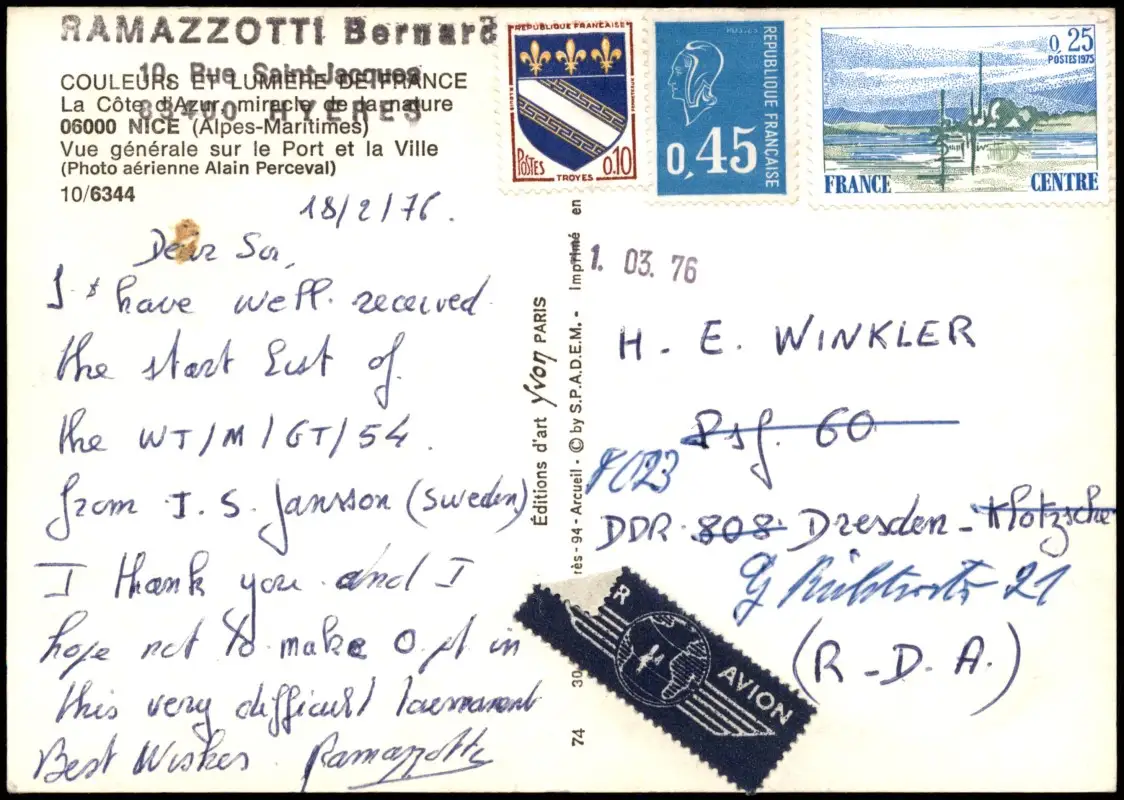 RAMAZZOTTI Bernard
10, Rue Saint-Jacques
83400 HYERES
COULEURS ET LUMIÈRE DE FRANCE
La Côte d'Azur, miracle de la nature
06000 NICE (Alpes-Maritimes)
Vue générale sur le Port et la Ville
(Photo aérienne Alain Perceval)
10/6344
18/2/76.
Dear Sir,
I have well received
the start list of
the WT/M/GT/54.
from J. S. Jansson (Sweden)
I thank you and I
hope not to make 0 pt in
this very difficult
Best Wishes Ramazzotti
Éditions d'art Yvon PARIS
74 30 rés - 94 - Arcueil - © by S.P.A.D.E.M. - Imprimé en
RÉPUBLIQUE FRANÇAISE
POSTES
TROYES
0,10
RÉPUBLIQUE FRANÇAISE
0,45
0,25
POSTES 1975
FRANCE
CENTRE
1. 03. 76
H. E. WINKLER
Psf. 60
8023
DDR 808 Dresden - Klotzsche
21
(R-D.A.)
R AVION